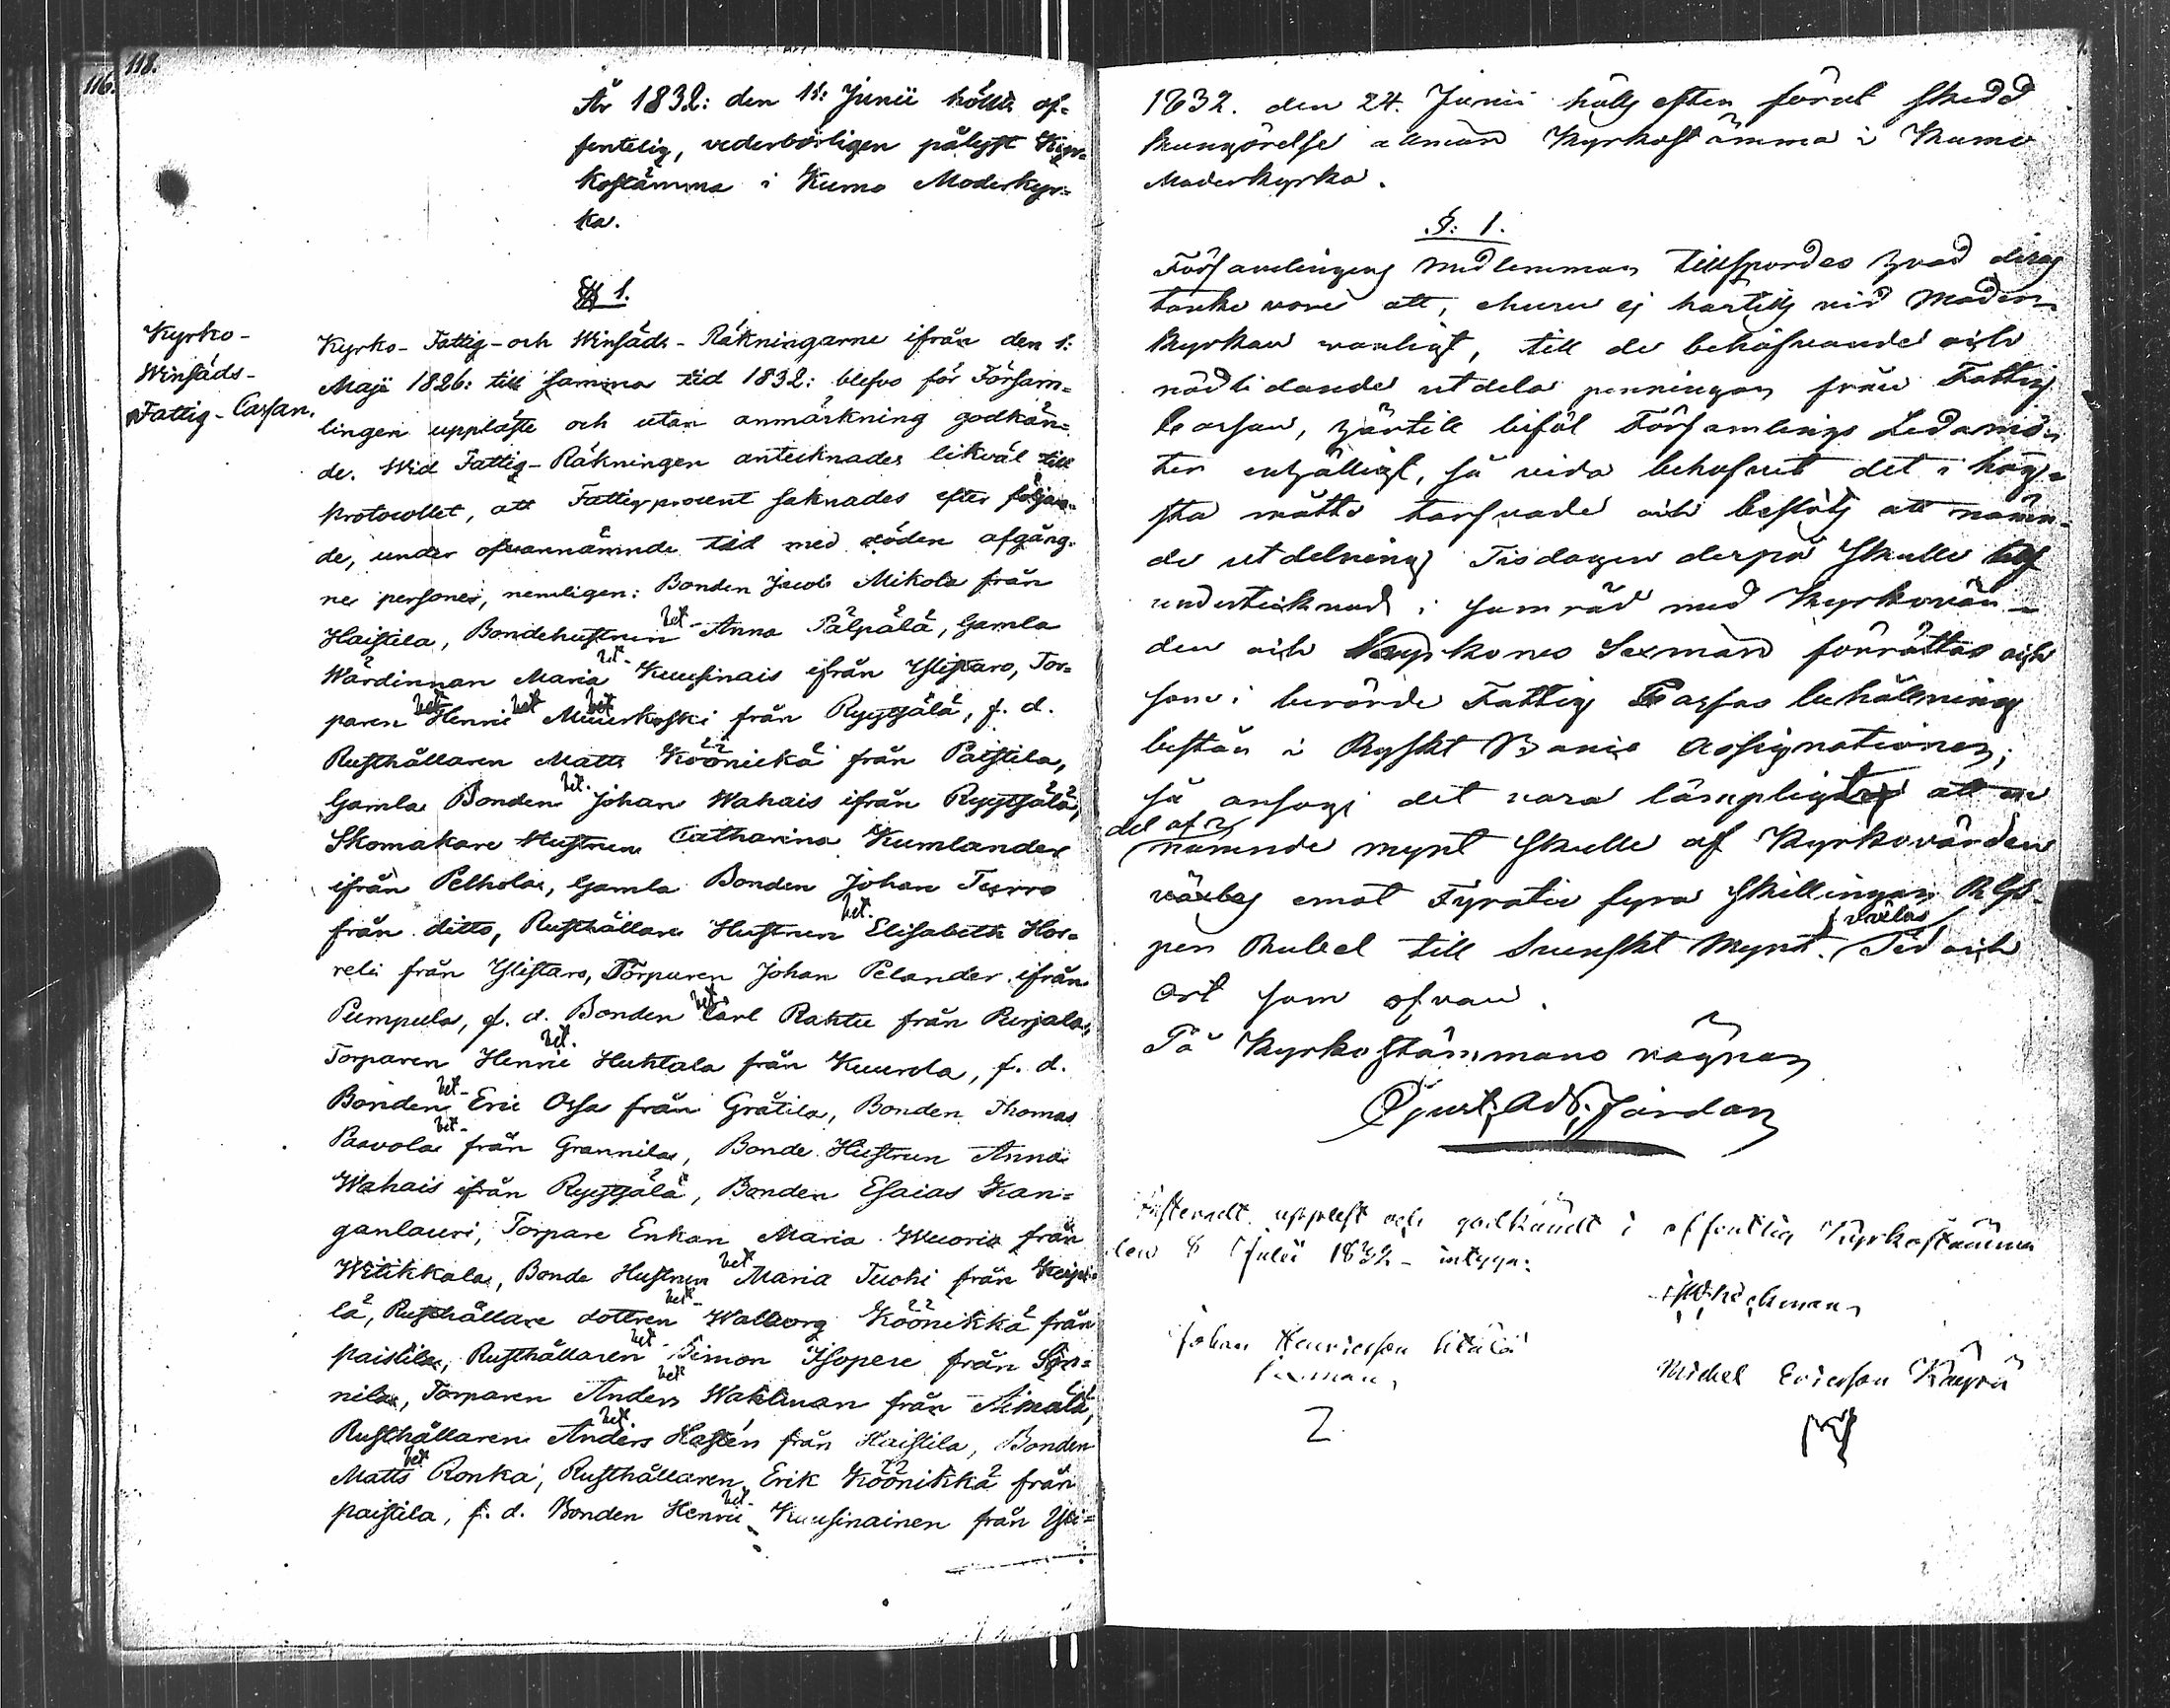 116.
118.
År 1832: den 11: Junii hölls of-
fentelig, vederbörligen pålyst Kyr-
kostämma i Kumo Moderkyr-
ka.
§ 1.
Kyrko-
Winsäds-
Fattig-Cassan.
Kyrko- Fattig- och Winsäds- Räkningarne ifrån den 1:
Maji 1826: till samma tid 1832: blefvo för Försam-
lingen uppläste och utan anmärkning godkän-
de. Wid Fattig-Räkningen antecknades likväl till
Protocollet, att Fattigprocent saknades efter följan-
de, under ofvannämnde tid med döden afgång-
ne personer, nemligen: Bonden Jacob Mikola från
Haistila, Bondehustrun bet- Anna Pälpälä, Gamla
Wärdinnan Maria bet- Kuusinais ifrån Ylistaro, Tor-
paren bet Henric bet bet från Ryytsälä, f. d.
Rusthållaren Matts Köönickä från Paistila,
Gamla Bonden bet. Johan Wahais ifrån Ryytsälä,
Skomakare Hustrun Catharina Kumlander
ifrån Pelhola, Gamla Bonden Johan Turro
från ditto, Rusthållare Hustrun bet. Elisabeth Hor-
reli från Ylistaro, Torparen Johan Pelander ifrån
Pumpula, f. d. Bonden bet. Carl Rahtu från Purjala,
Torparen Henric bet. Huhtala från Kuurola, f. d.
Bonden bet- Eric Ossa från Gråtila, Bonden Thomas
Paavola bet- från Grannila, Bonde Hustrun Anna
Wahais ifrån Ryytsälä, Bonden Esaias Kan-
ganlauri, Torpare Enkan Maria Wuorio från
Witikkala, Bonde Hustrun bet Maria Tuohi från
lä, Rusthållare dottren bet- Walborg Köönikkä från
paistila, Rusthållaren bet- Simon Isopere från Sän-
nila, Torparen bet Anders Wahlman från
Rusthållaren bet. Anders Hastén från Haistila, Bonden
Matts bet. Ronka, Rusthållaren Erik Köönikkä från
paistila, f. d. Bonden Henric bet- Kuusinainen från Yli-
1832. den 24. Junii hölls efter förut skedd
kungörelse allmän Kyrkostämma i Kumo
Moderkyrka.
§: 1.
Församlingens medlemmar tillspordes hvad deras
tanke vore att, ehuru ej härtills vid Moder-
kyrkan vanligt, till de behöfvande och
nödlidande utdela penningar från Fattig
Cassan, härtill biföl Församlings Ledamö-
ter enhälligt, så vida behofvet det i hög-
sta måtto tarfvade och beslöts att nämn-
de utdelning Tisdagen derpå skulle af
undertecknad i samråd med Kyrkovär-
den och Kyrkones Sexmän förrättas och
som i berörde Fattig Cassas behållning
består i Ryskt Banco Assignationer;
så ansågs det vara lämpligt att en
del af
nämnde mynt skulle af Kyrkovärden
växlas emot Fyratio fyra Skillingar Rgs
per Rubel till Svenskt Mynt. växlas Tid och
Ort som ofvan.
På Kyrkostämmans vägnar
Gust. Ad. Jordan
Justeradt, uppläst och godkändt i offentlig Kyrkostämma
den 8 Julii 1832 - intyga:
Johan Henricsson
Sexman,
Michel Ericsson Käyrä